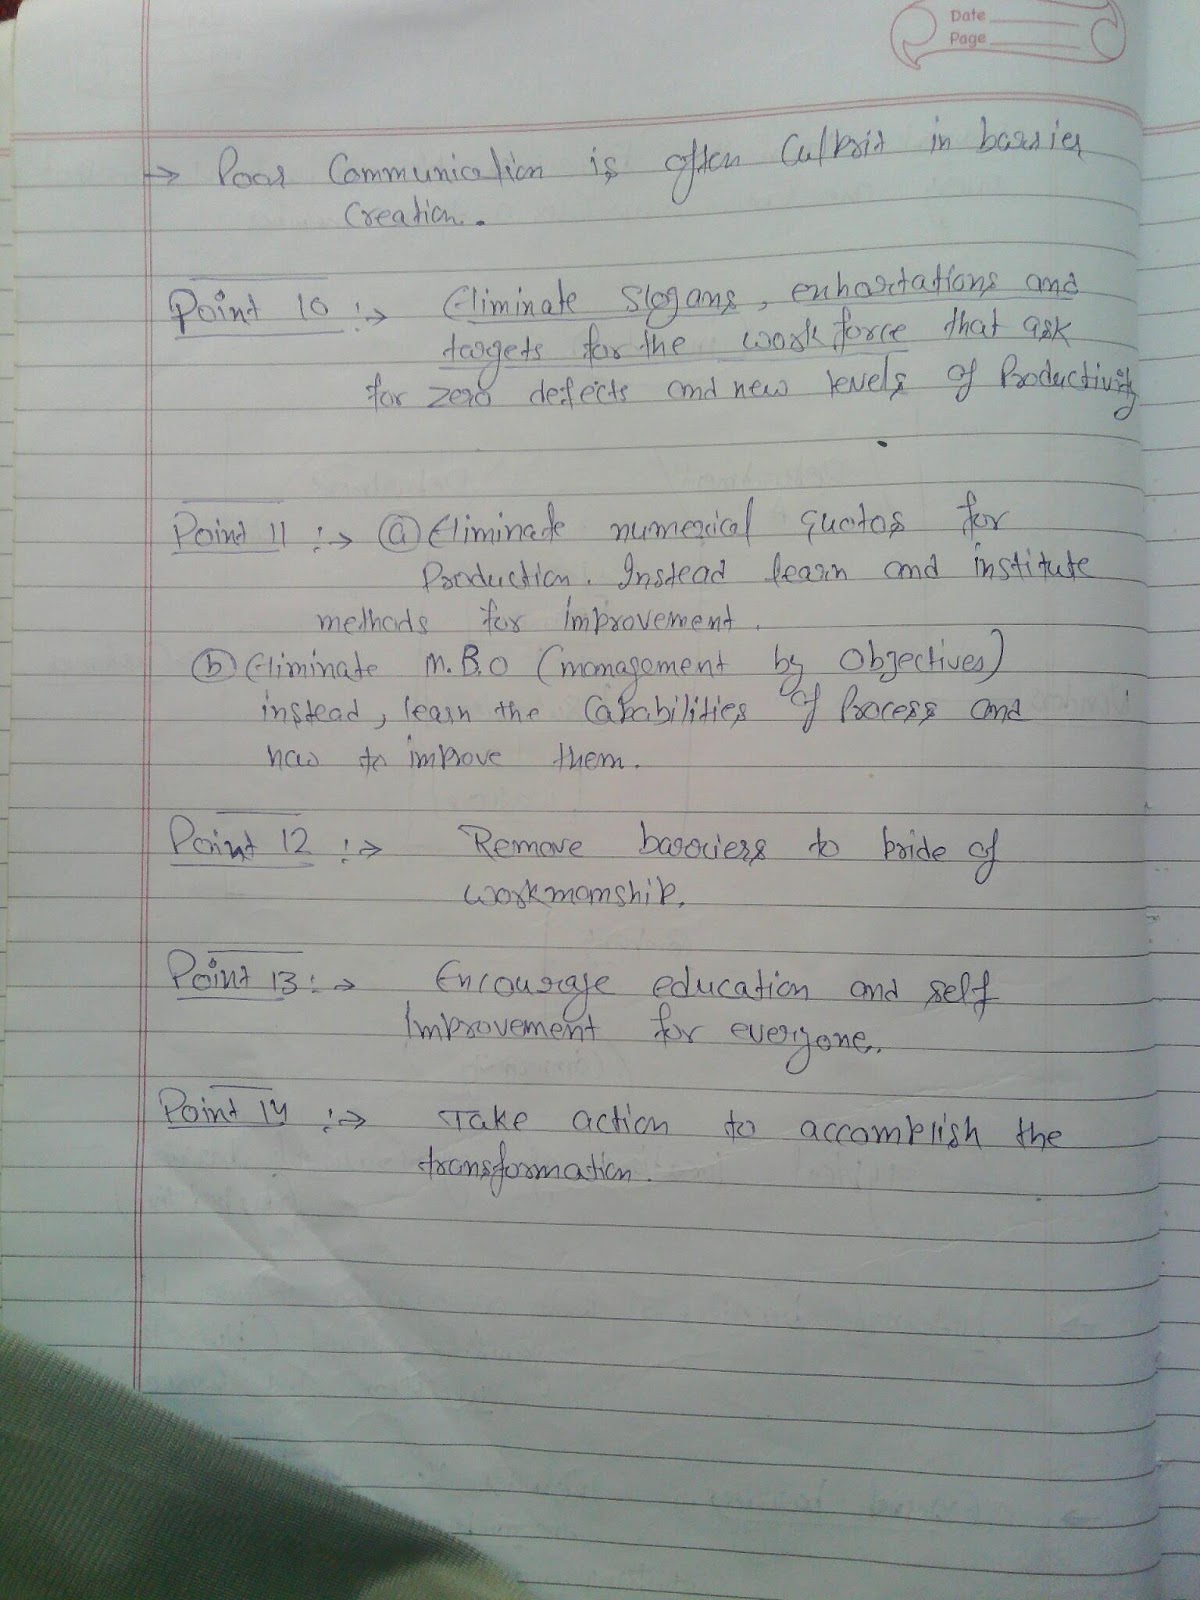 Date
Page
→ Poor Communication is often Culprit in barrier
Creation.
Point 10 :→ Eliminate Slogans, enhortations and
targets for the work force that ask
for zero defects and new levels of Productivity
Point 11 :→ (a) Eliminate numerical quotas for
Production. Instead learn and institute
methods for improvement.
(b) Eliminate M.B.O (management by Objectives)
instead, learn the Capabilities of Process and
how to improve them.
Point 12 :→ Remove barriers to pride of
workmanship.
Point 13 :→ Encourage education and self
Improvement for everyone.
Point 14 :→ Take action to accomplish the
transformation.